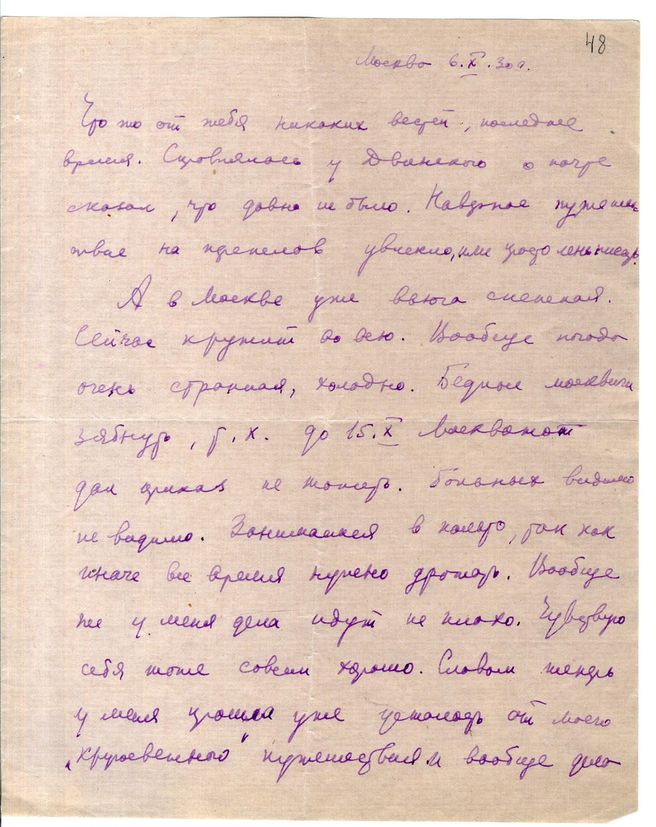 48
Москва 6.X.30 г.
Что то от тебя никаких вестей, последнее
время. Справлялась у Двинского о почте
сказал, что давно не было. Наверное путешес
твие на перевалов увлекло, или просто лень писать.
А в Москве уже вьюга снежная.
Сейчас кружит во всю. Вообще погода
очень странная, холодно. Бедные москвичи
зябнут, т.к. до 15.X Москватоп
дал приказ не топить. Больных видимо
не видимо. Занимаемся в пальто, так как
иначе все время нужно дрожать. Вообще
же у меня дела идут не плохо. Чувствую
себя тоже совсем хорошо. Словом теперь
у меня прошла уже усталость от моего
„кружевенного" путешествия и вообще дела